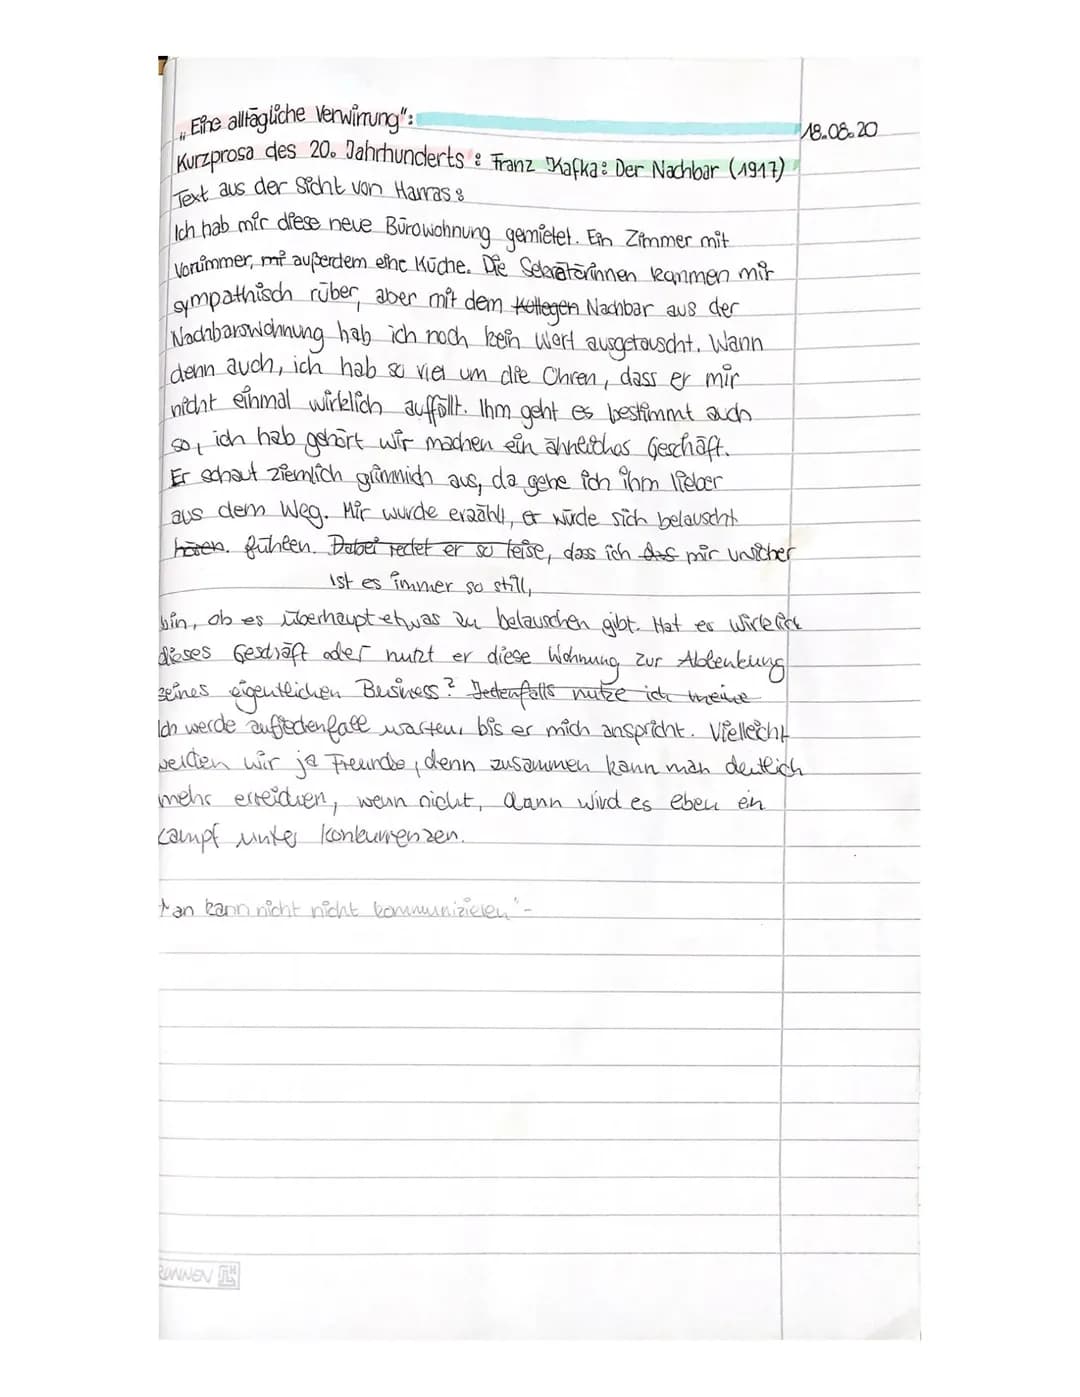 „Eine alltägliche Verwirrung":
18.08.20
Kurzprosa des 20. Jahrhunderts: Franz Kafka: Der Nachbar (1917)
Text aus der Sicht von Harras:
Ich hab mir diese neue Bürowohnung gemietet. Ein Zimmer mit
Vorzimmer, mit außerdem eine Küche. Die Sekretärinnen kammen mir
sympathisch rüber, aber mit dem Kollegen Nachbar aus der
Nachbarswohnung hab ich noch kein Wort ausgetauscht. Wann
denn auch, ich hab so viel um die Ohren, dass er mir
nicht einmal wirklich auffällt. Ihm geht es bestimmt auch
so, ich hab gehört wir machen ein ähnliches Geschäft.
Er schaut ziemlich grimmich aus, da gehe ich ihm lieber
aus dem Weg. Mir wurde erzählt, er würde sich belauscht
hören. fühlen. Dabei redet er so leise, dass ich das mir unsicher
ist es immer so still,
bin, ob es überhaupt etwas zu belauschen gibt. Hat er wirklich
dieses Geschäft oder nutzt er diese Wohnung zur Ablenkung
seines eigentlichen Business? Jedenfalls nutze ich meine
Ich werde aufjedenfall warten, bis er mich anspricht. Vielleicht
werden wir ja Freunde, denn zusammen kann man deutlich
mehr erreichen, wenn nicht, dann wird es eben ein
Kampf unter Konkurrenzen.
an kann nicht nicht kommunizieren"-
RONNEN